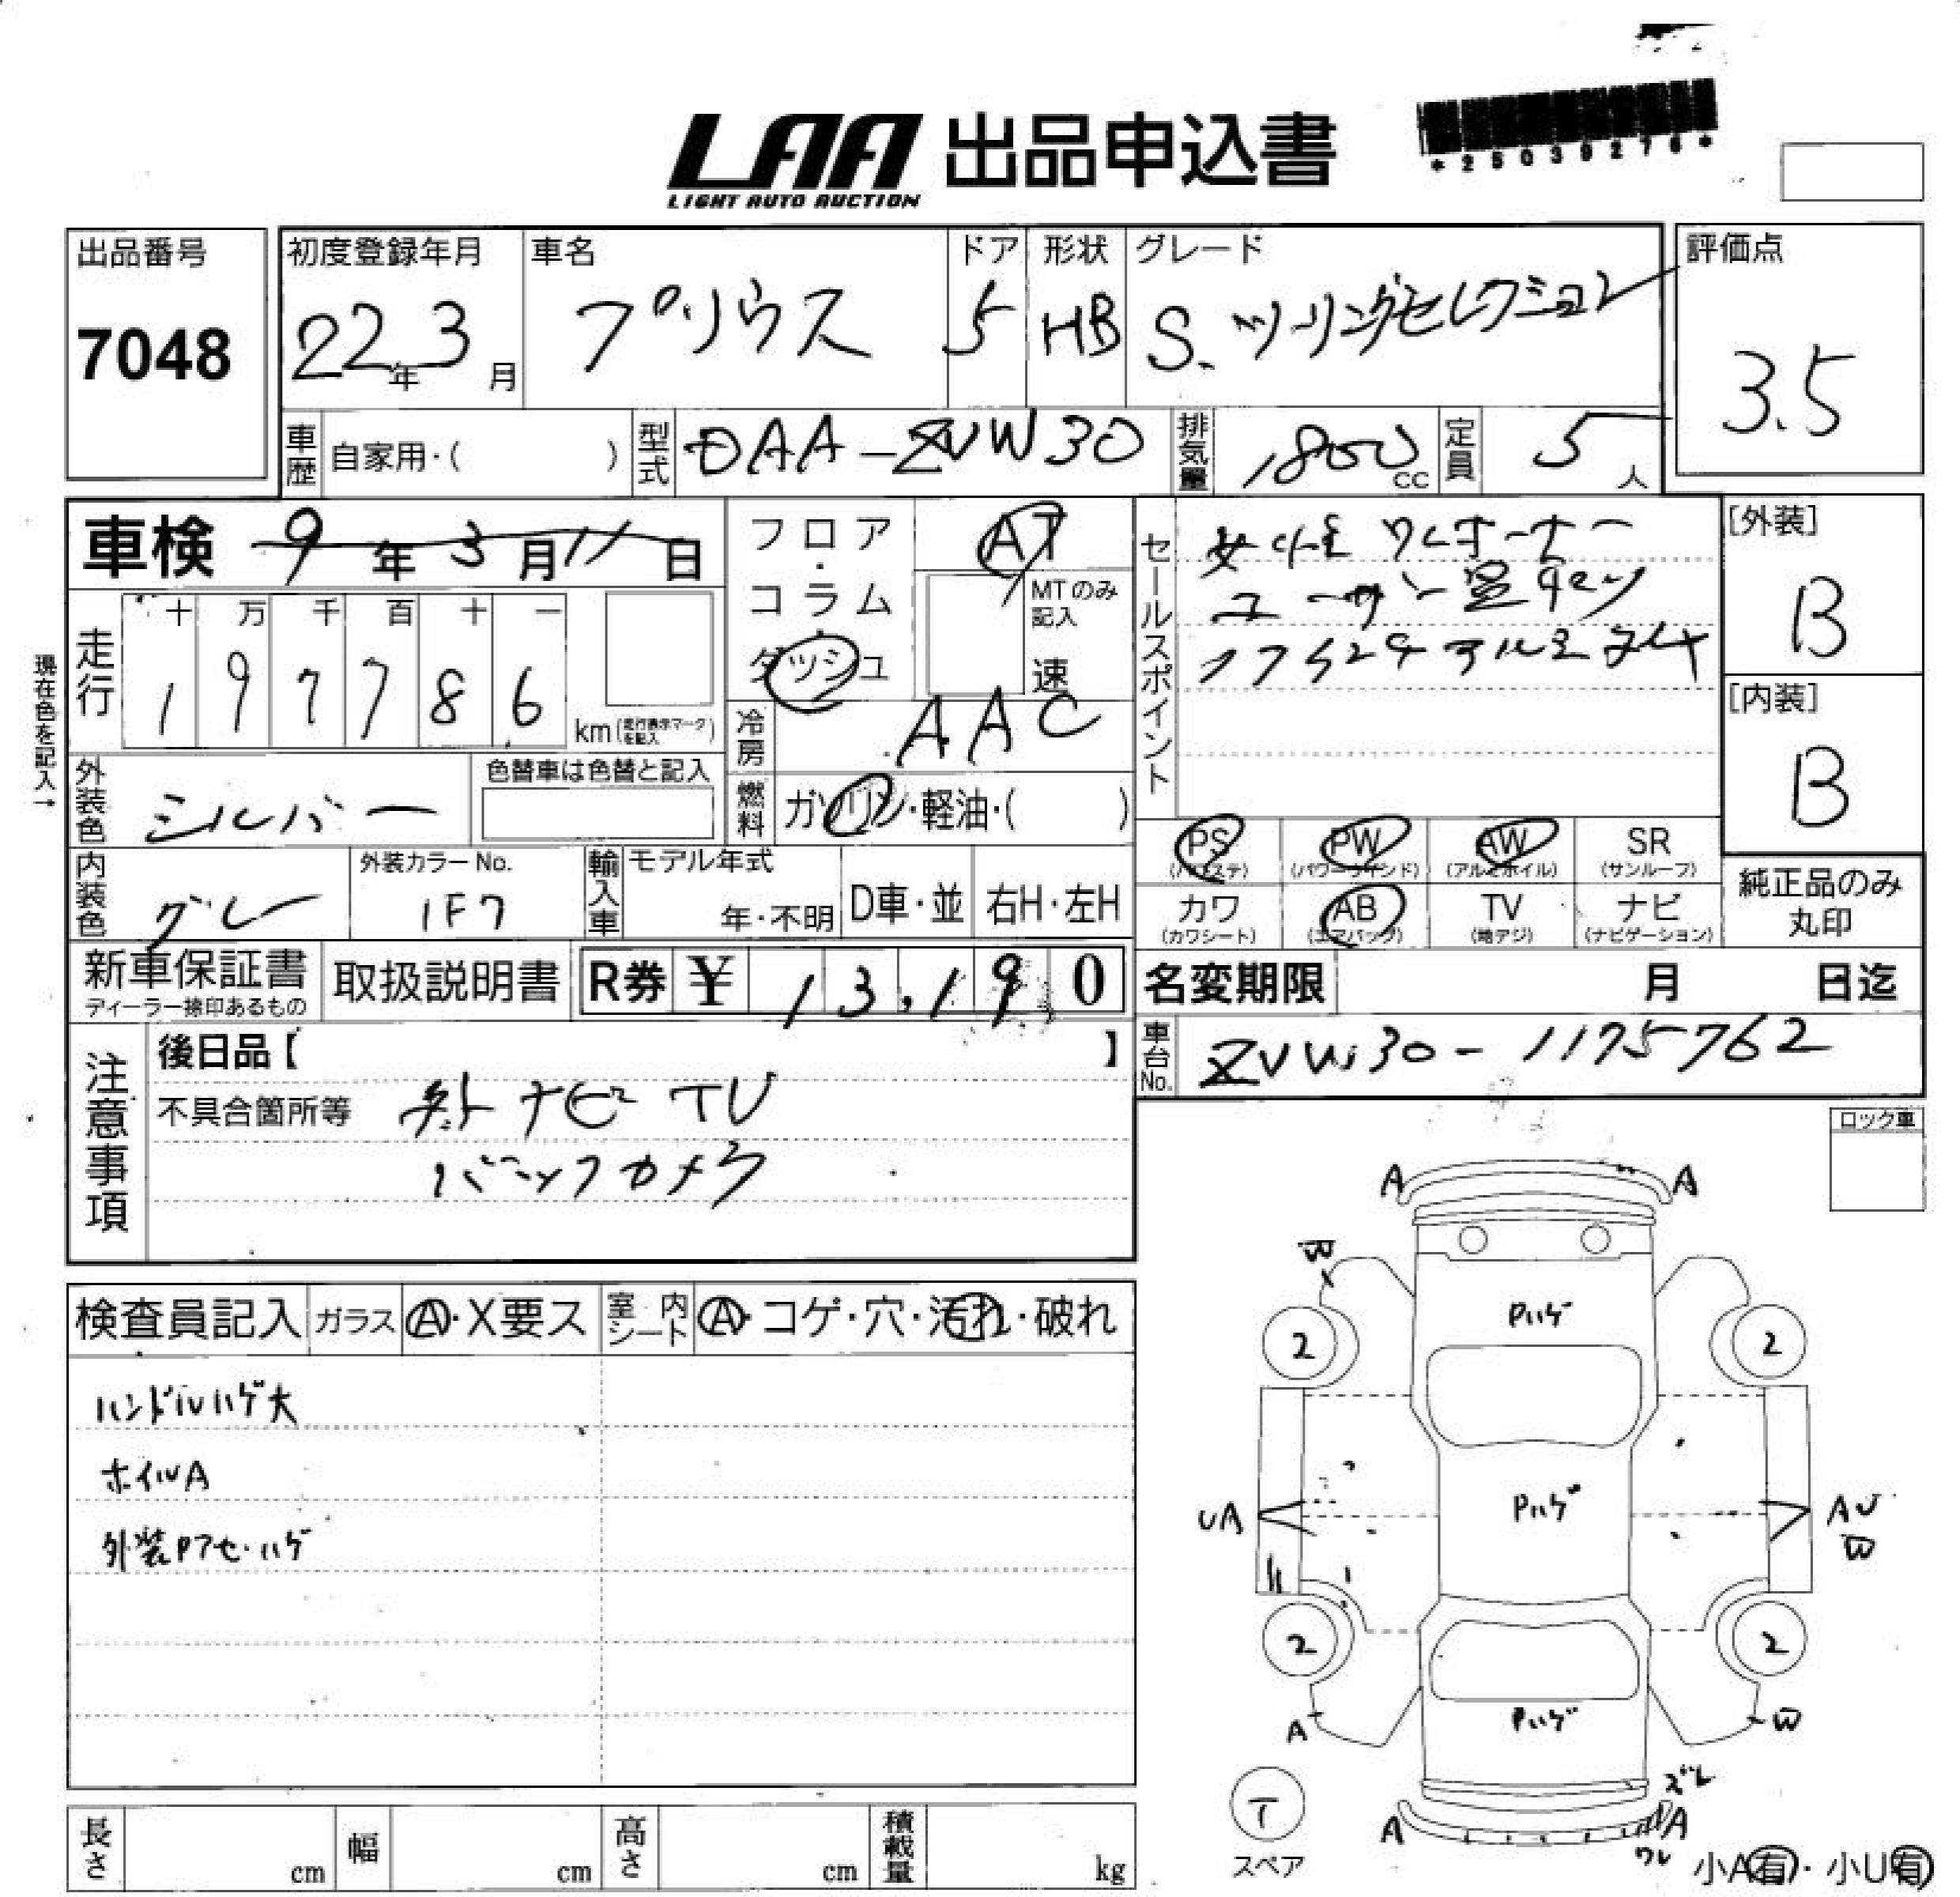 LAA 出品申込書
LIGHT AUTO AUCTION
*25039276*
出品番号
7048
初度登録年月
22年3月
車名
プリウス
ドア
5
形状
HB
グレード
S.ツーリングセレクション
評価点
3.5
車歴 自家用・( )
型式 DAA-ZVW30
排気量 1800cc
定員 5人
車検 9年3月11日
走行
十 万 千 百 十 一
1 9 7 7 8 6 km(走行表示マークを記入)
現在色を記入→
外装色 シルバー
色替車は色替と記入
内装色 グレー
外装カラーNo.
1F7
フロア・コラム・ダッシュ
AT
MTのみ記入
速
冷房 AAC
燃料 ガソリン・軽油・( )
輸入車
モデル年式
年・不明
D車・並
右H・左H
セールスポイント
女性ワンオーナー
ユーザー買取
17インチアルミ
[外装]
B
[内装]
B
PS (パワステ)
PW (パワーウインド)
AW (アルミホイル)
SR (サンルーフ)
カワ (カワシート)
AB (エアバッグ)
TV (地デジ)
ナビ (ナビゲーション)
純正品のみ
丸印
新車保証書
ディーラー捺印あるもの
取扱説明書
R券 ¥ 13,190
名変期限 月 日迄
車台No. ZVW30-1175762
注意事項
後日品【 】
不具合箇所等 外ナビTV
バックカメラ
ロック車
検査員記入
ガラス A・X要ス
室内シート A・コゲ・穴・汚れ・破れ
ハンドルハゲ大
ホイルA
外装Pアセ・ハゲ
A A
W
Pハゲ
2 2
Pハゲ
UA
AU
W
2 2
Pハゲ
A
W
ズレ
A
A
ワレ
T
スペア
小A有・小U有
長さ cm
幅 cm
高さ cm
積載量 kg